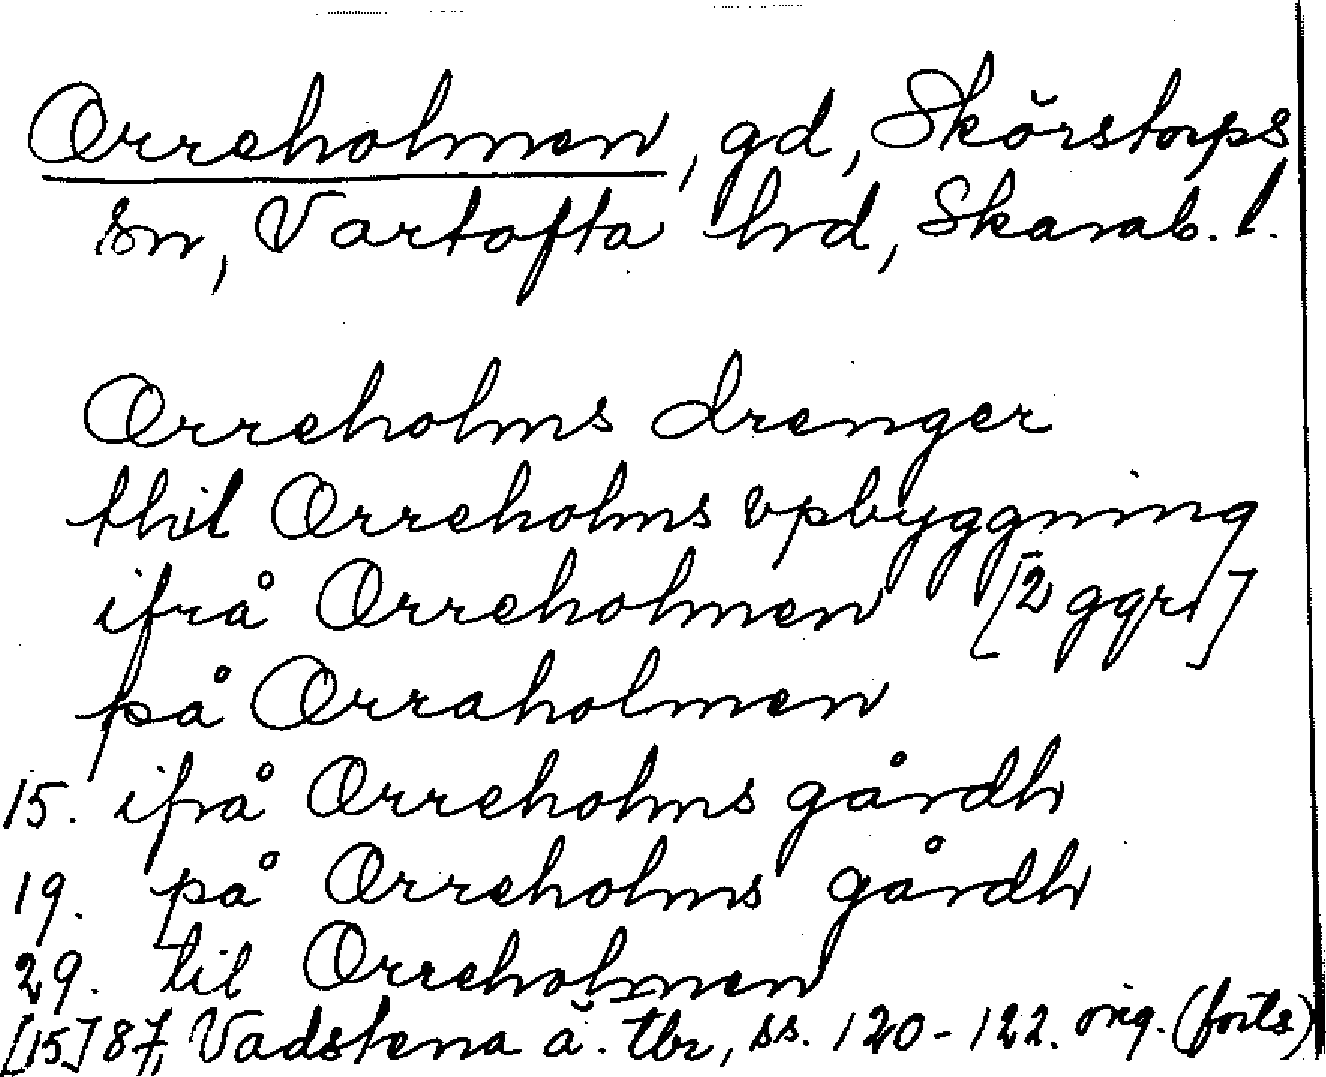 Orreholmen, gd, Skörstorps
sn, Vartofta hrd, Skarab. l.
Orreholms drenger
thil Orreholms vpbyggning
ifrå Orreholmen [2 ggr]
på Orraholmen
15. ifrå Orreholms gårdh
19. på Orreholms gårdh
29. til Orreholmen
[15]87, Vadstena ä. tbr, ss. 120-122. orig. (forts)